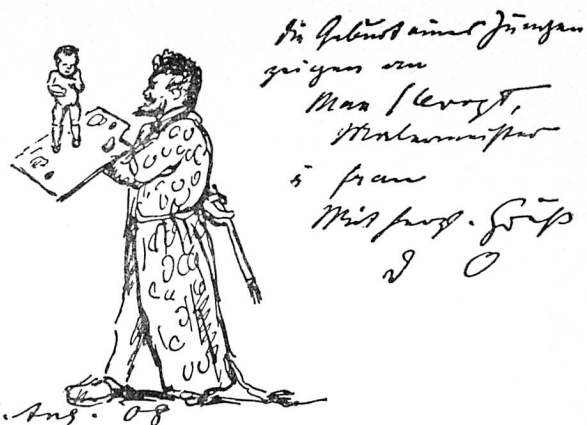 Die Geburt eines Jungen
zeigen an
Max Slevogt,
Malermeister
& Frau
Mit herzl. Gruß
D O
Aug. 08